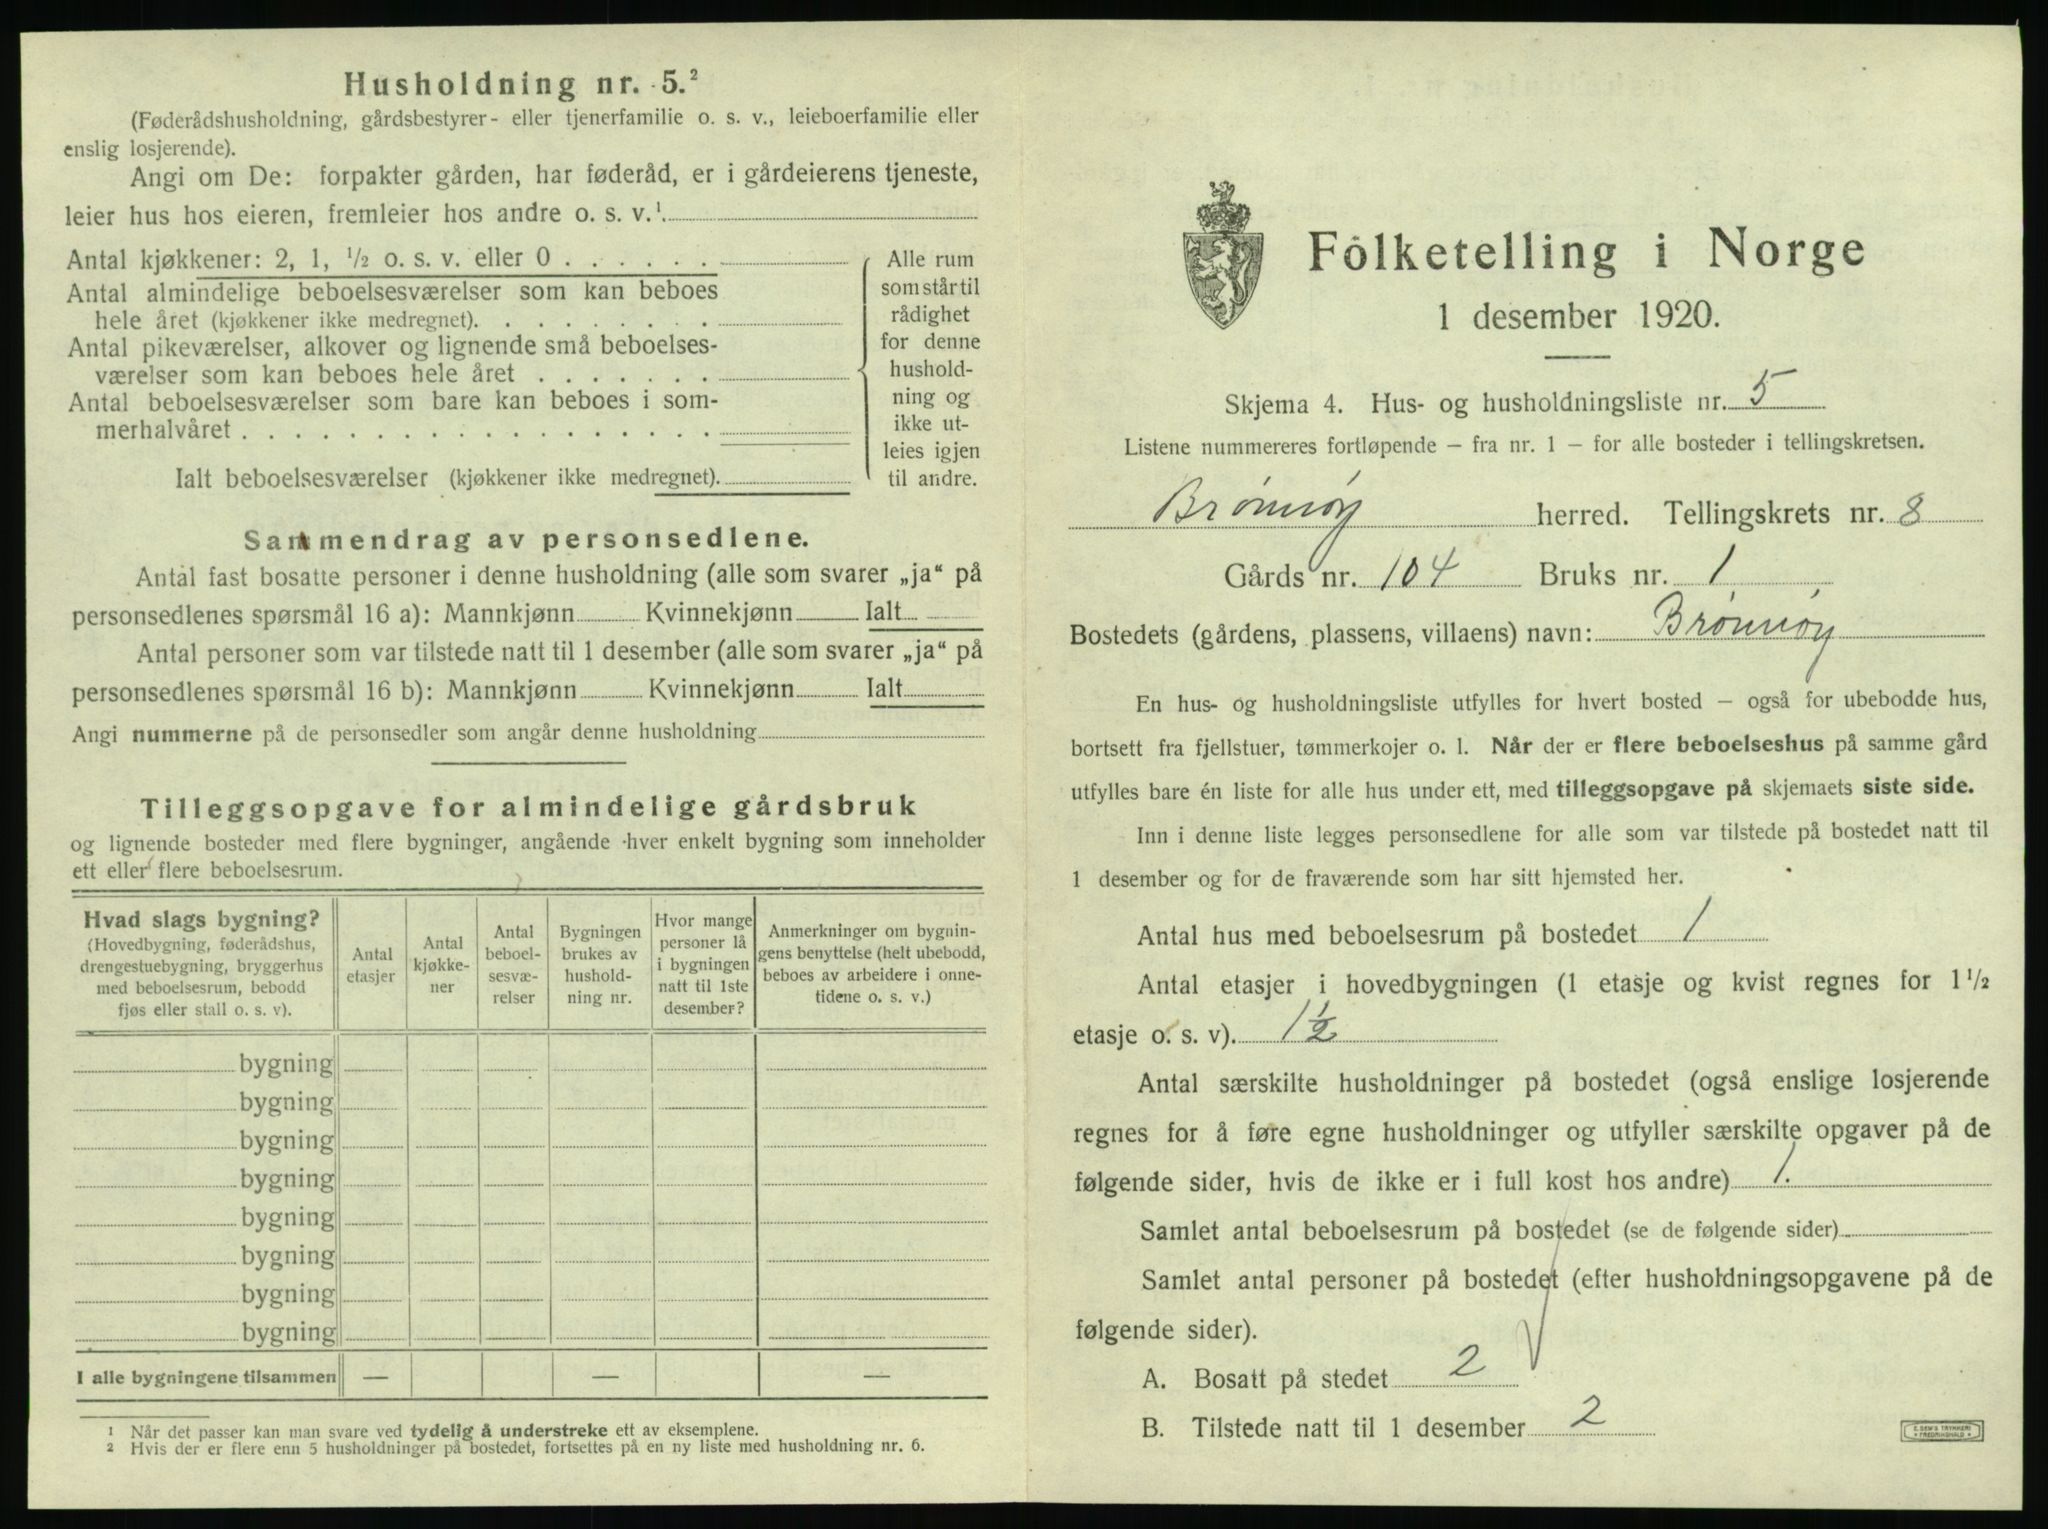 Husholdning nr. 5.²
(Føderådshusholdning, gårdsbestyrer- eller tjenerfamilie o. s. v., leieboerfamilie eller
enslig losjerende).
Angi om De: forpakter gården, har føderåd, er i gårdeierens tjeneste,
leier hus hos eieren, fremleier hos andre o. s. v.¹
Antal kjøkkener: 2, 1, ½ o. s. v. eller 0 . . . . . .
Antal almindelige beboelsesværelser som kan beboes
hele året (kjøkkener ikke medregnet). . . . . . . . .
Antal pikeværelser, alkover og lignende små beboelses-
værelser som kan beboes hele året . . . . . . .
Antal beboelsesværelser som bare kan beboes i som-
merhalvåret . . . . . . . . . . . . . . . . . .
Ialt beboelsesværelser (kjøkkener ikke medregnet).
Alle rum
som står til
rådighet
for denne
hushold-
ning og
ikke ut-
leies igjen
til andre.
Sammendrag av personsedlene.
Antal fast bosatte personer i denne husholdning (alle som svarer „ja“ på
personsedlenes spørsmål 16 a): Mannkjønn Kvinnekjønn Ialt
Antal personer som var tilstede natt til 1 desember (alle som svarer „ja“ på
personsedlenes spørsmål 16 b): Mannkjønn Kvinnekjønn Ialt
Angi nummerne på de personsedler som angår denne husholdning
Tilleggsopgave for almindelige gårdsbruk
og lignende bosteder med flere bygninger, angående hver enkelt bygning som inneholder
ett eller flere beboelsesrum.
Hvad slags bygning?
(Hovedbygning, føderådshus,
drengestuebygning, bryggerhus
med beboelsesrum, bebodd
fjøs eller stall o. s. v).
Antal
etasjer
Antal
kjøkke-
ner
Antal
beboel-
sesvæ-
relser
Bygningen
brukes av
hushold-
ning nr.
Hvor mange
personer lå
i bygningen
natt til 1ste
desember?
Anmerkninger om bygnin-
gens benyttelse (helt ubebodd,
beboes av arbeidere i onne-
tidene o. s. v.)
bygning
bygning
bygning
bygning
bygning
bygning
bygning
bygning
I alle bygningene tilsammen — — —
¹ Når det passer kan man svare ved tydelig å understreke ett av eksemplene.
² Hvis der er flere enn 5 husholdninger på bostedet, fortsettes på en ny liste med husholdning nr. 6.
Folketelling i Norge
1 desember 1920.
Skjema 4. Hus- og husholdningsliste nr. 5
Listene nummereres fortløpende – fra nr. 1 – for alle bosteder i tellingskretsen.
Brønnøy herred. Tellingskrets nr. 8
Gårds nr. 104 Bruks nr. 1
Bostedets (gårdens, plassens, villaens) navn: Brønnøy
En hus- og husholdningsliste utfylles for hvert bosted – også for ubebodde hus,
bortsett fra fjellstuer, tømmerkojer o. l. Når der er flere beboelseshus på samme gård
utfylles bare én liste for alle hus under ett, med tilleggsopgave på skjemaets siste side.
Inn i denne liste legges personsedlene for alle som var tilstede på bostedet natt til
1 desember og for de fraværende som har sitt hjemsted her.
Antal hus med beboelsesrum på bostedet 1
Antal etasjer i hovedbygningen (1 etasje og kvist regnes for 1½
etasje o. s. v). 1½
Antal særskilte husholdninger på bostedet (også enslige losjerende
regnes for å føre egne husholdninger og utfyller særskilte opgaver på de
følgende sider, hvis de ikke er i full kost hos andre) 1.
Samlet antal beboelsesrum på bostedet (se de følgende sider)
Samlet antal personer på bostedet (efter husholdningsopgavene på de
følgende sider).
A. Bosatt på stedet 2
B. Tilstede natt til 1 desember 2
E. SEM'S TRYKKERI
FREDRIKSHALD